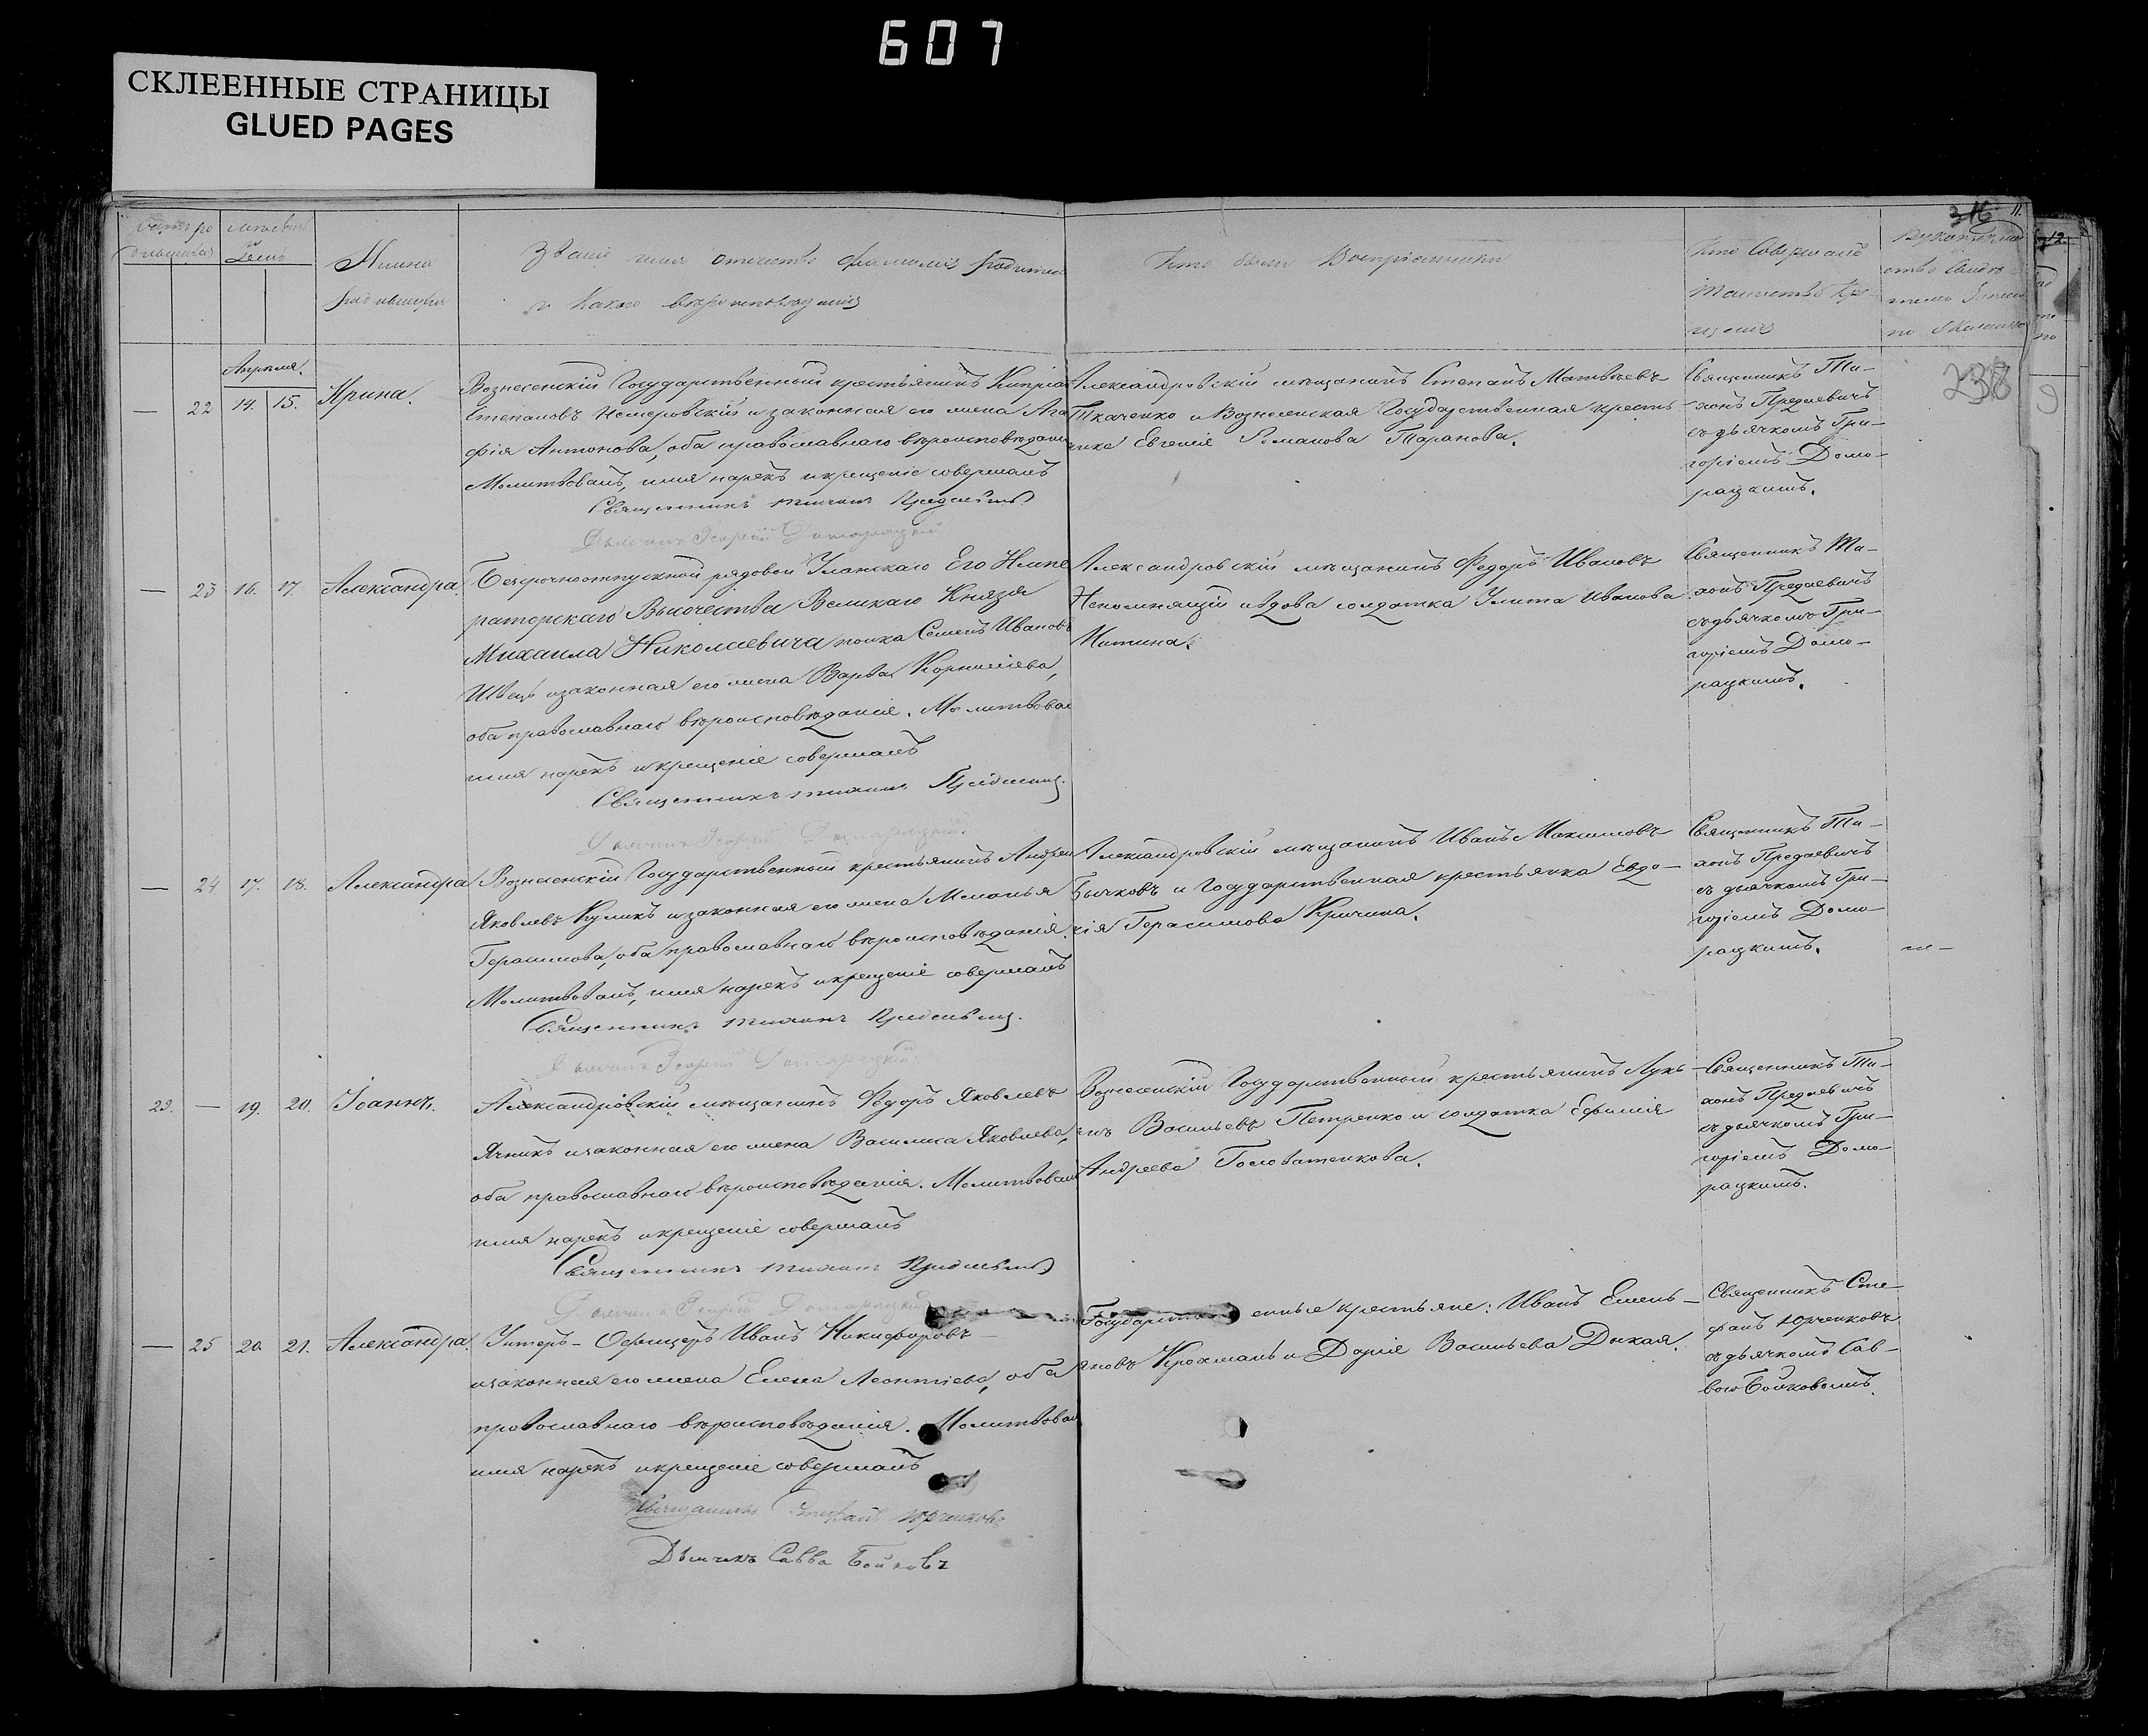 607
СКЛЕЕННЫЕ СТРАНИЦЫ
GLUED PAGES
316
11.
12.
238
Имена
Званіе имя отечество фамилія родител
и какого вѣроисповѣданія
Кто были Воспріемники
Кто совершалъ
таинство кре
щенія
Апрѣля.
— 22 14. 15. Ирина.
Вознесенскій Государственный крестьянинъ Кипріа
Степановъ Немеровскій и законная его жена Ага
фія Антонова, оба православнаго вѣроисповѣдані
Молитвовалъ, имя нарекъ и крещеніе совершалъ
Священникъ Тихонъ
Александровскій мѣщанинъ Степанъ Матвѣевъ
Ткаченко и Вознесенская Государственная кресть
янка Евгенія Романова Таранова.
Священникъ Ти-
хонъ Предаевичъ
съ дьячкомъ Гри-
горіемъ Домо-
рацкимъ.
— 23 16. 17. Александра.
Безсрочноотпускной рядовой Уланскаго Его Импе
раторскаго Высочества Великаго Князя
Михаила Николаевича полка Семенъ Ивановъ
Швецъ и законная его жена Варва. Корнилева,
оба православнаго вѣроисповѣданія. Молитвовал
имя нарекъ и крещеніе совершалъ
Священникъ Тихонъ
Александровскій мѣщанинъ Федоръ Ивановъ
Непомнящій и вдова солдатка Улита Иванова
Митина.
Священникъ Ти-
хонъ Предаевичъ
съ дьячкомъ Гри-
горіемъ Домо-
рацкимъ.
— 24 17. 18. Александра
Вознесенскій Государственный крестьянинъ Андрей
Яковлевъ Куликъ и законная его жена Меланья
Герасимова, оба православнаго вѣроисповѣданія.
Молитвовалъ, имя нарекъ и крещеніе совершалъ
Священникъ Тихонъ
Александровскій мѣщанинъ Иванъ Максимовъ
Бычковъ и Государственная крестьянка Евдо-
кія Герасимова Кричина.
Священникъ Ти-
хонъ Предаевичъ
съ дьячкомъ Гри-
горіемъ Домо-
рацкимъ.
не-
23. — 19. 20. Іоаннъ.
Александровскій мѣщанинъ Федоръ Яковлевъ
Ячникъ и законная его жена Василиса Яковлева,
оба православнаго вѣроисповѣданія. Молитвовалъ
имя нарекъ и крещеніе совершалъ
Священникъ Тихонъ
Вознесенскій Государственный крестьянинъ Лукь-
янъ Васильевъ Петренко и солдатка Ефимія
Андреева Головатенкова.
Священникъ Ти-
хонъ Предаевичъ
съ дьячкомъ Гри-
горіемъ Домо-
рацкимъ.
— 25 20. 21. Александра.
Унтеръ-Офицеръ Иванъ Никифоровъ
и законная его жена Елена Леонтіева, оба
православнаго вѣроисповѣданія. Молитвовал
имя нарекъ и крещеніе совершалъ
Священникъ Стефанъ Юрченковъ
Дьячекъ Савва Бойковъ
Государств енные крестьяне: Иванъ Емель-
яновъ Крохмаль и Дарія Васильева Дикая.
Священникъ Сте-
фанъ Юрченковъ
съ дьячкомъ Сав-
вою Бойковымъ.